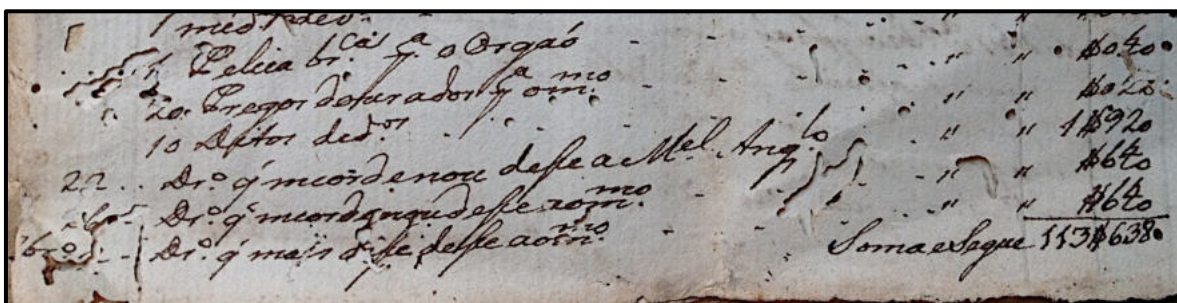 1
1 Pelica br.cas p.a o Orgaõ - - - " " $040
20 Pregos dourador p.a o m.mo - - " " $020
10 Ditos de d.os - - - " " 1$920
22 Dr.o q̃ me ordenou desse a M.el Ang.lo - " " $640
26 Dr.o q̃ me ordenou desse ao m.mo - - " " $640
Dr.o q̃ mais disse desse ao m.mo Soma e Segue 113$638